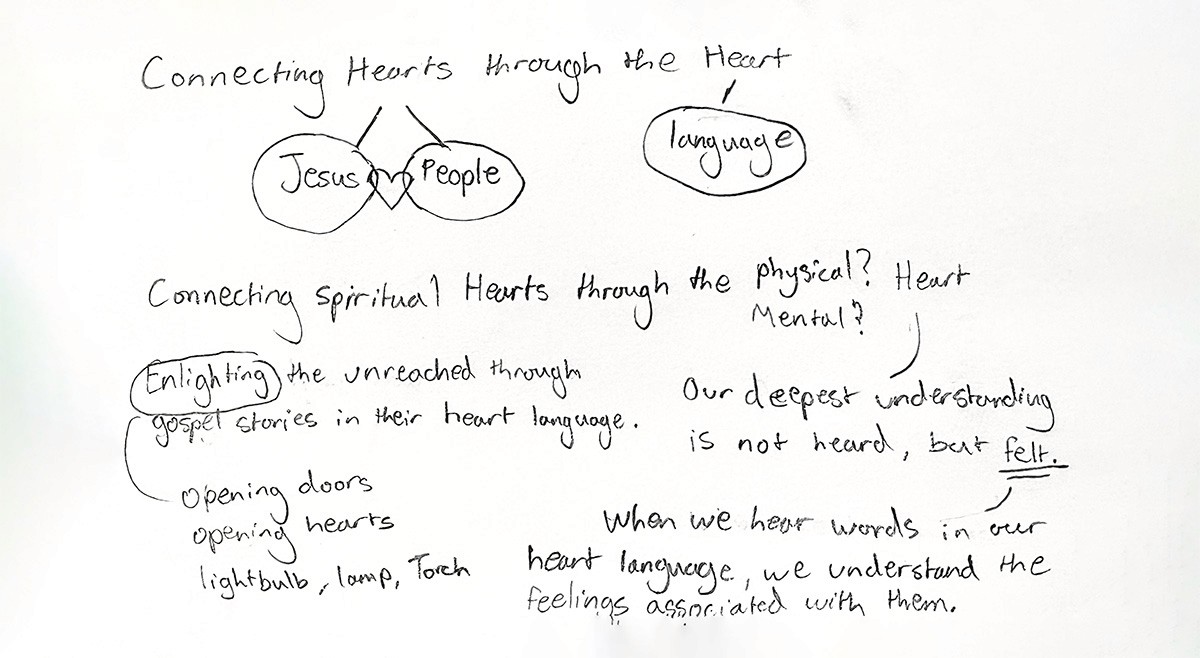 Connecting Hearts through the Heart
Jesus
People
language
Connecting spiritual Hearts through the physical? Heart
Mental?
Enlighting the unreached through
gospel stories in their heart language.
opening doors
opening hearts
lightbulb, lamp, Torch
Our deepest understanding
is not heard, but felt.
When we hear words in our
heart language, we understand the
feelings associated with them.